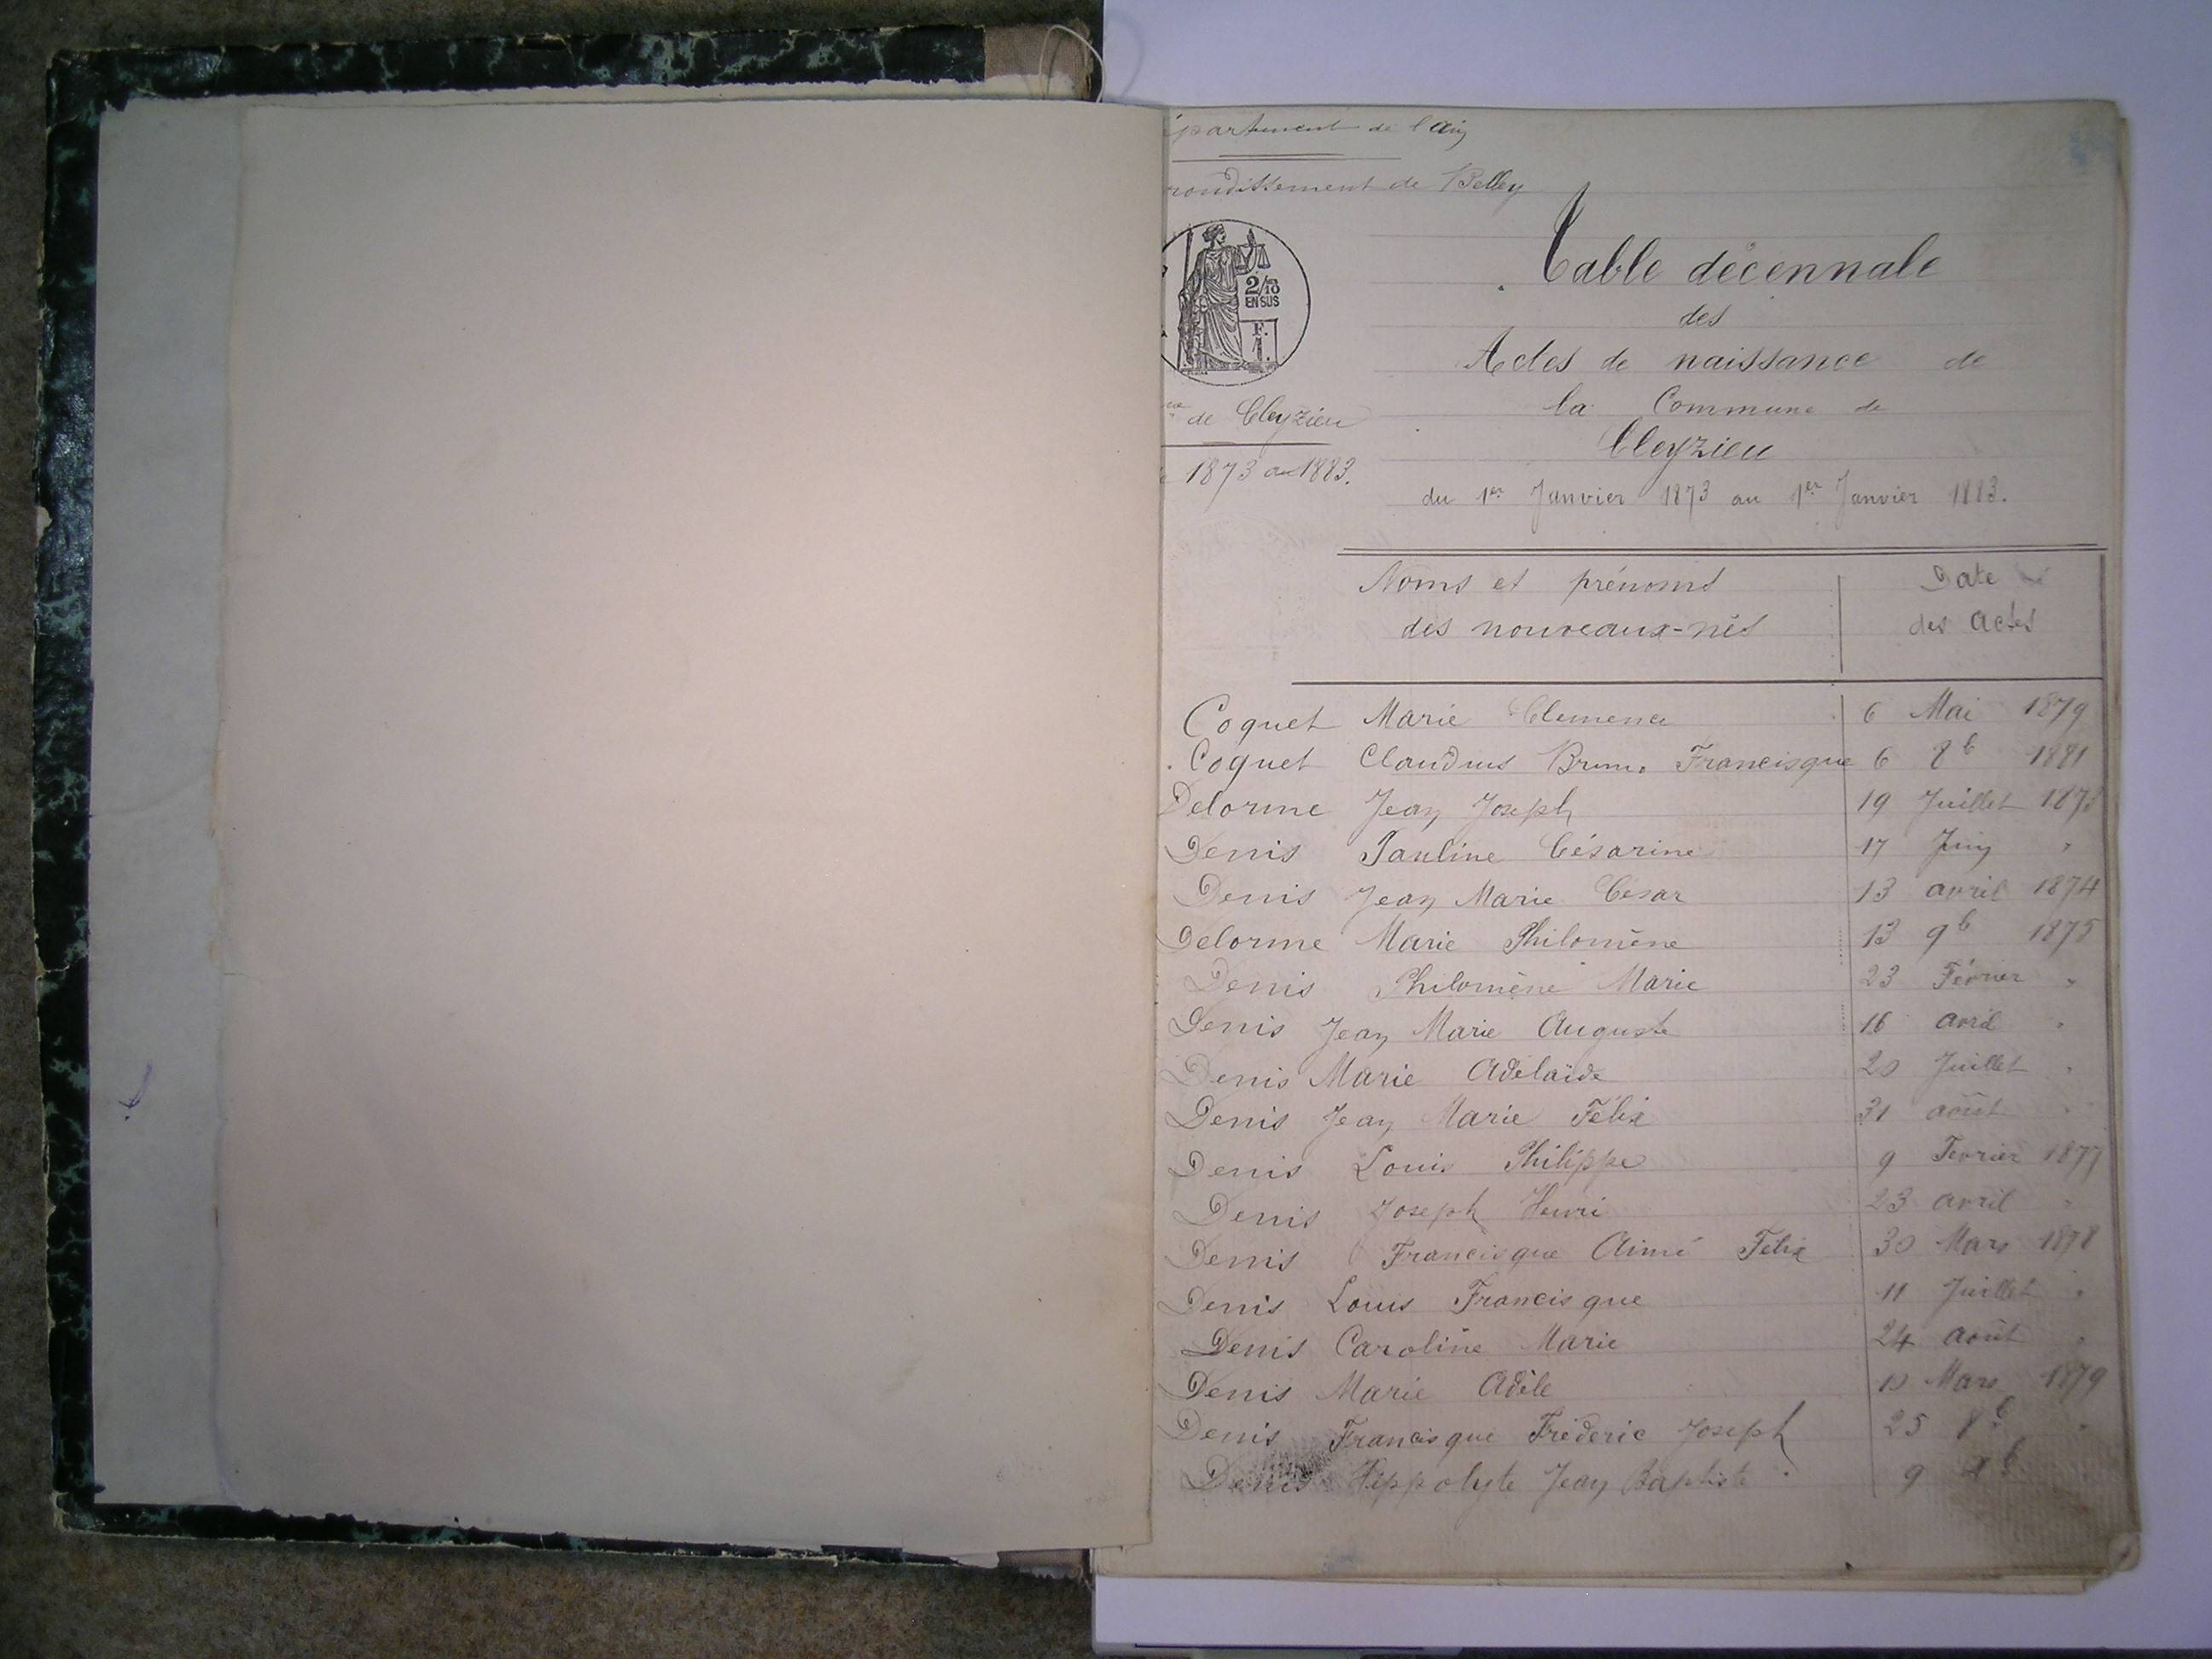 épartement de l'Ain
rondissement de Belley
2/10
EN SUS
F.
1.
de Cleyzieu
1873 au 1883.
Table décennale
des
Actes de naissance de
la Commune de
Cleyzieu
du 1er Janvier 1873 au 1er Janvier 1883.
Noms et prénoms
des nouveaux-nés
Date
des actes
Coquet Marie Clemence 6 Mai 1879
Coquet Claudius Bruno Francisque 6 8b 1881
Delorme Jean Joseph 19 Juillet 1873
Denis Pauline Césarine 17 Juin "
Denis Jean Marie César 13 avril 1874
Delorme Marie Philomène 13 9b 1875
Denis Philomène Marie 23 Février "
Denis Jean Marie Auguste 16 avril "
Denis Marie Adélaïde 20 Juillet "
Denis Jean Marie Félix 31 août "
Denis Louis Philippe 9 Fevrier 1877
Denis Joseph Henri 23 avril "
Denis Francisque Aimé Felix 30 Mars 1878
Denis Louis Francisque 11 Juillet "
Denis Caroline Marie 24 août "
Denis Marie Adèle 10 Mars 1879
Denis Francisque Fréderic Joseph 25 8b "
Denis Hippolyte Jean Baptiste 9 Xb